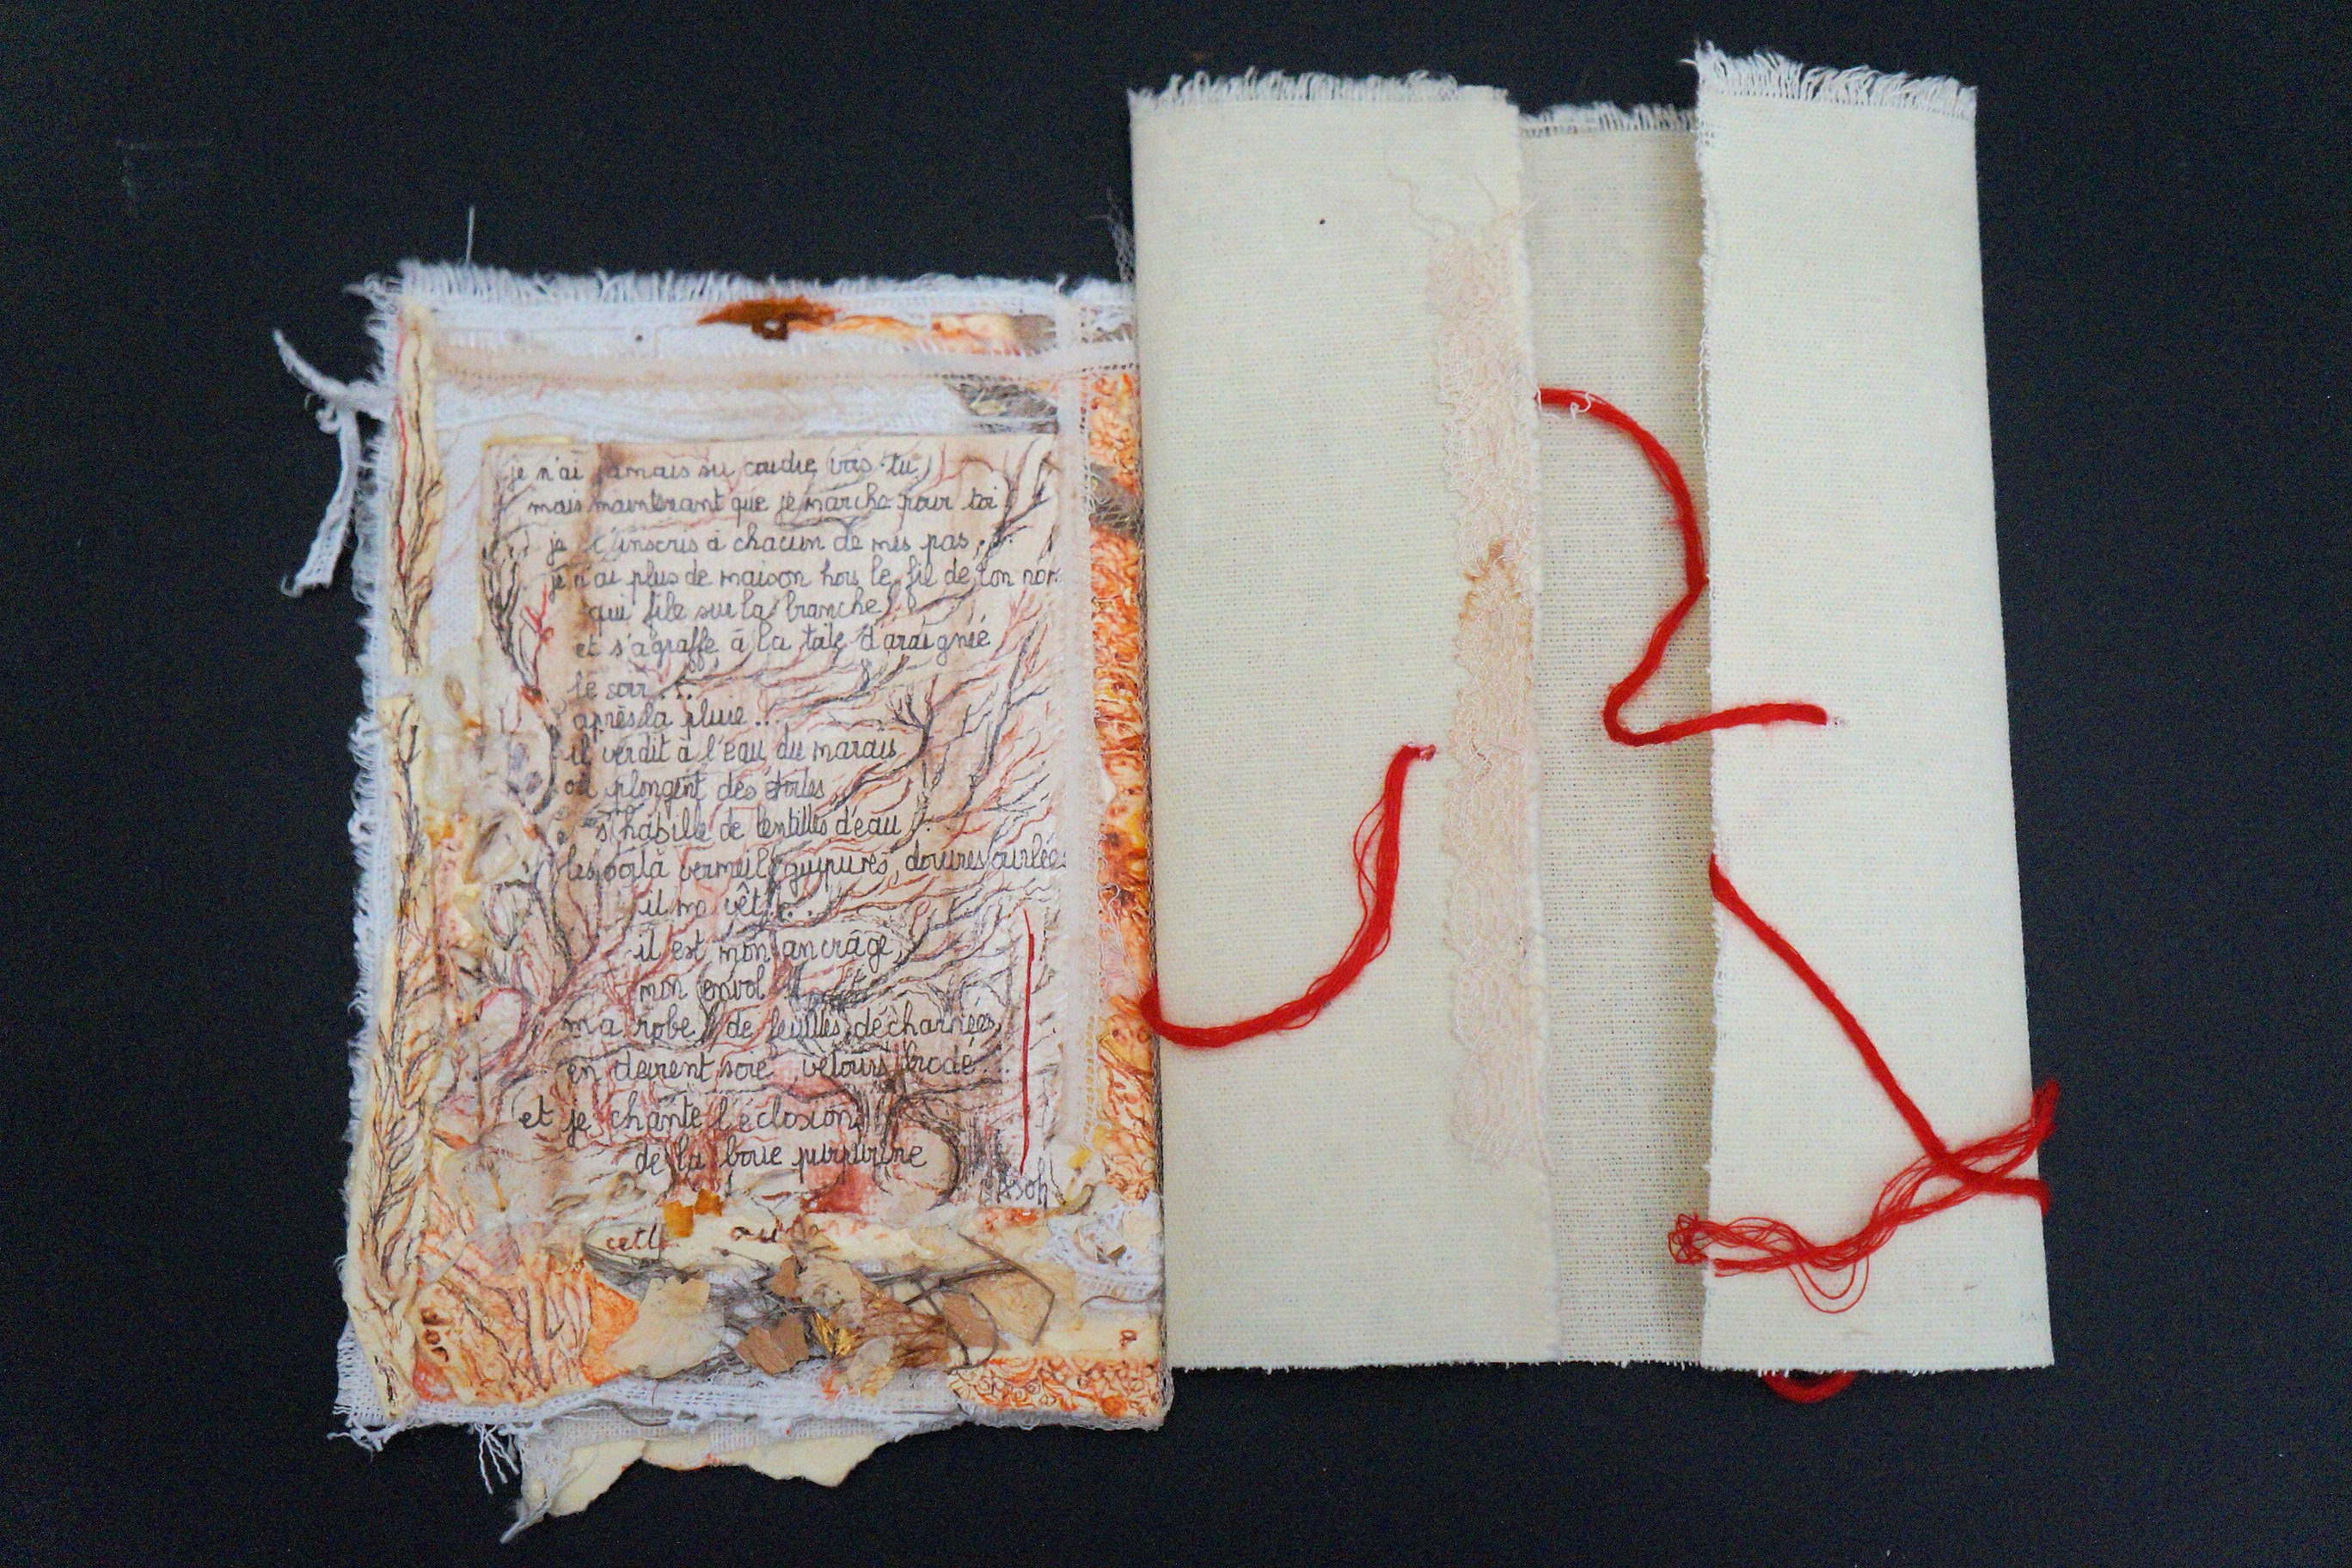 je n'ai jamais su coudre vois-tu,
mais maintenant que je marche pour toi
je t'inscris à chacun de mes pas,
je n'ai plus de maison hors le fil de ton nom
qui file sur la branche
et s'agraffe à la toile d'araignée
le soir...
après la pluie...
il verdit à l'eau du marais
où plongent des étoiles
s'habille de lentilles d'eau
les voilà vermeil, guipures, dorures ourlées
il me vêt...
il est mon ancrage,
mon envol
ma robe de feuilles décharnées
en devient soie, velours brodé...
et je chante l'éclosion
de la boue purpurine